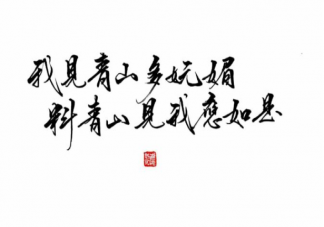 我見青山多妩媚
料青山見我應如是